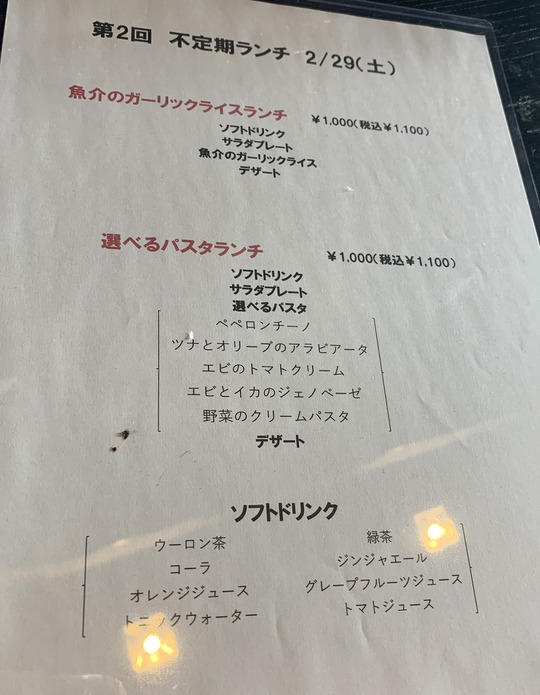 第2回 不定期ランチ 2/29(土)
魚介のガーリックライスランチ ¥1,000(税込¥1,100)
ソフトドリンク
サラダプレート
魚介のガーリックライス
デザート
選べるパスタランチ ¥1,000(税込¥1,100)
ソフトドリンク
サラダプレート
選べるパスタ
ペペロンチーノ
ツナとオリーブのアラビアータ
エビのトマトクリーム
エビとイカのジェノベーゼ
野菜のクリームパスタ
デザート
ソフトドリンク
ウーロン茶 緑茶
コーラ ジンジャエール
オレンジジュース グレープフルーツジュース
トニックウォーター トマトジュース